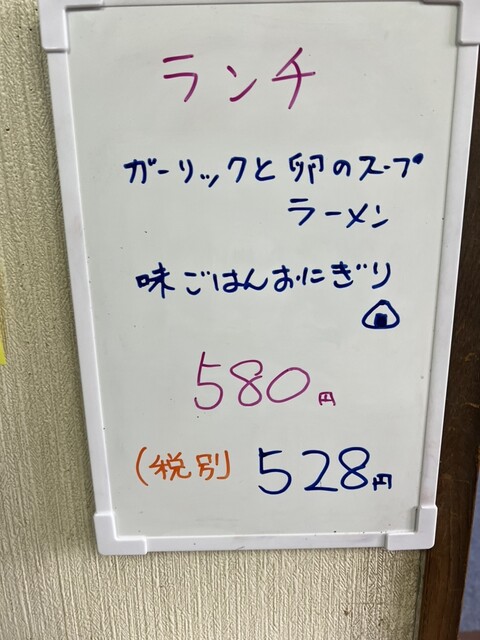 ランチ
ガーリックと卵のスープ
ラーメン
味ごはんおにぎり
580円
(税別) 528円